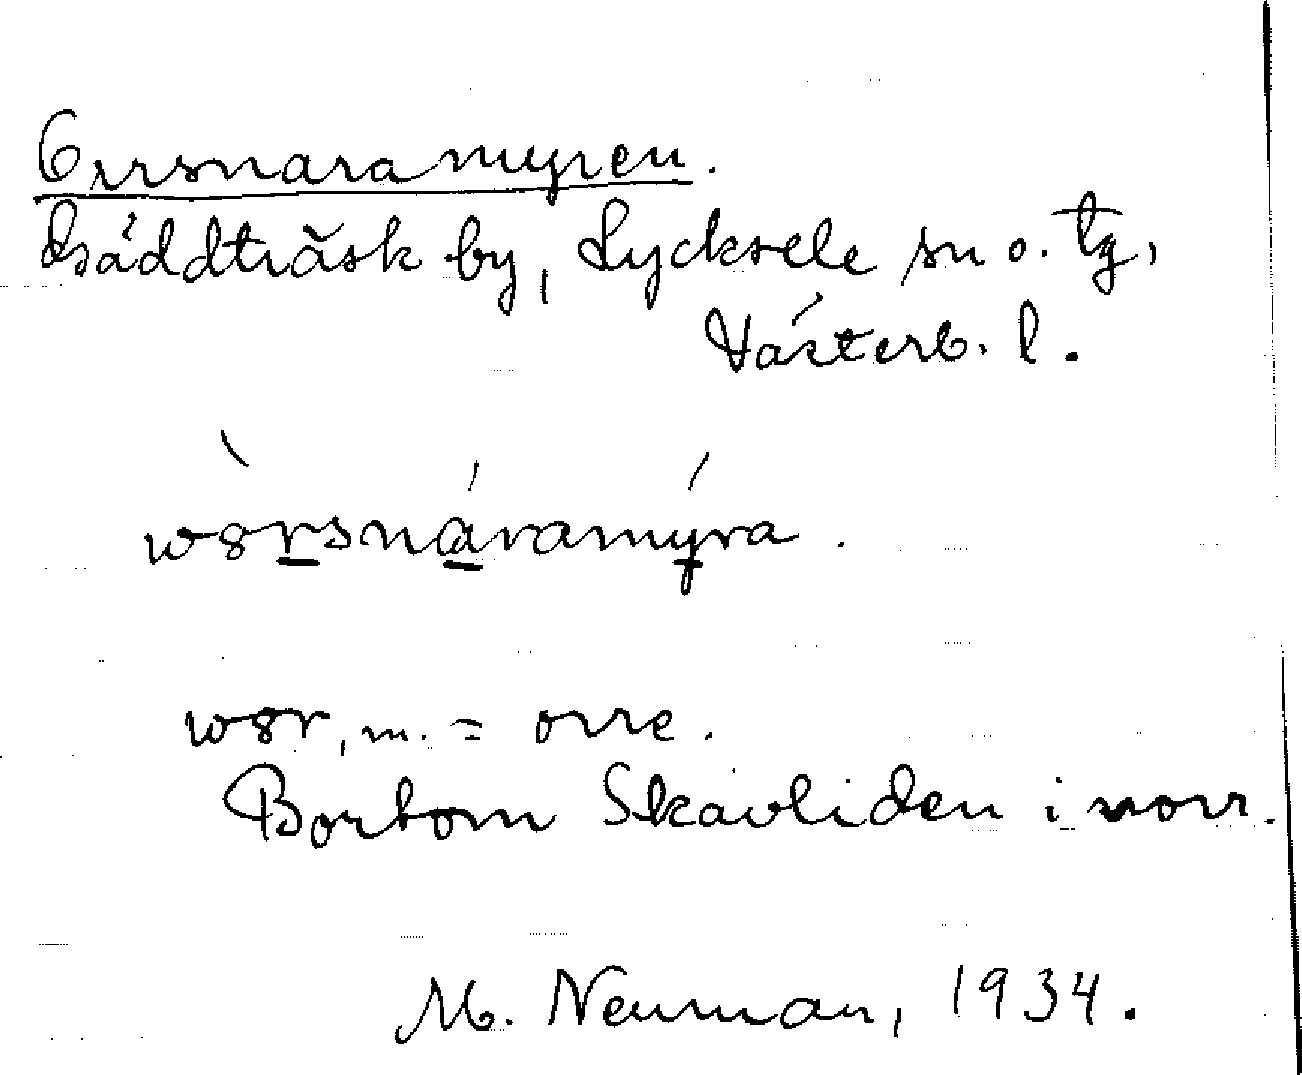 Orrsnaramyren.
Bäddträsk by, Lycksele sn o. tg,
Västerb. l.
wȣrsnáramýra.
wȣr, m. = orre.
Bortom Skavliden i norr.
M. Neuman, 1934.